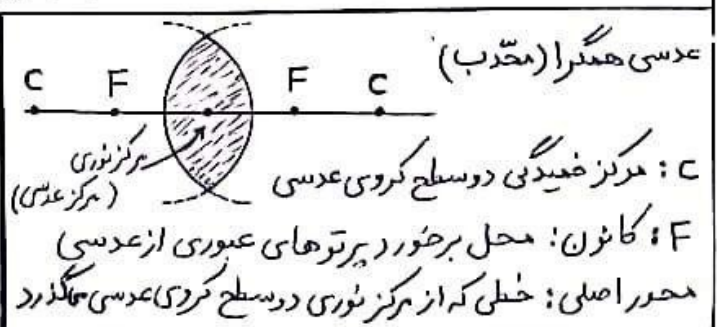 عدسی همگرا (محدّب)
C F F C
مرکز نوری
(مرکز عدسی)
C : مرکز خمیدگی دو سطح کروی عدسی
F : کانون : محل برخورد پرتوهای عبوری از عدسی
محور اصلی : خطی که از مرکز نوری دو سطح کروی عدسی میگذرد